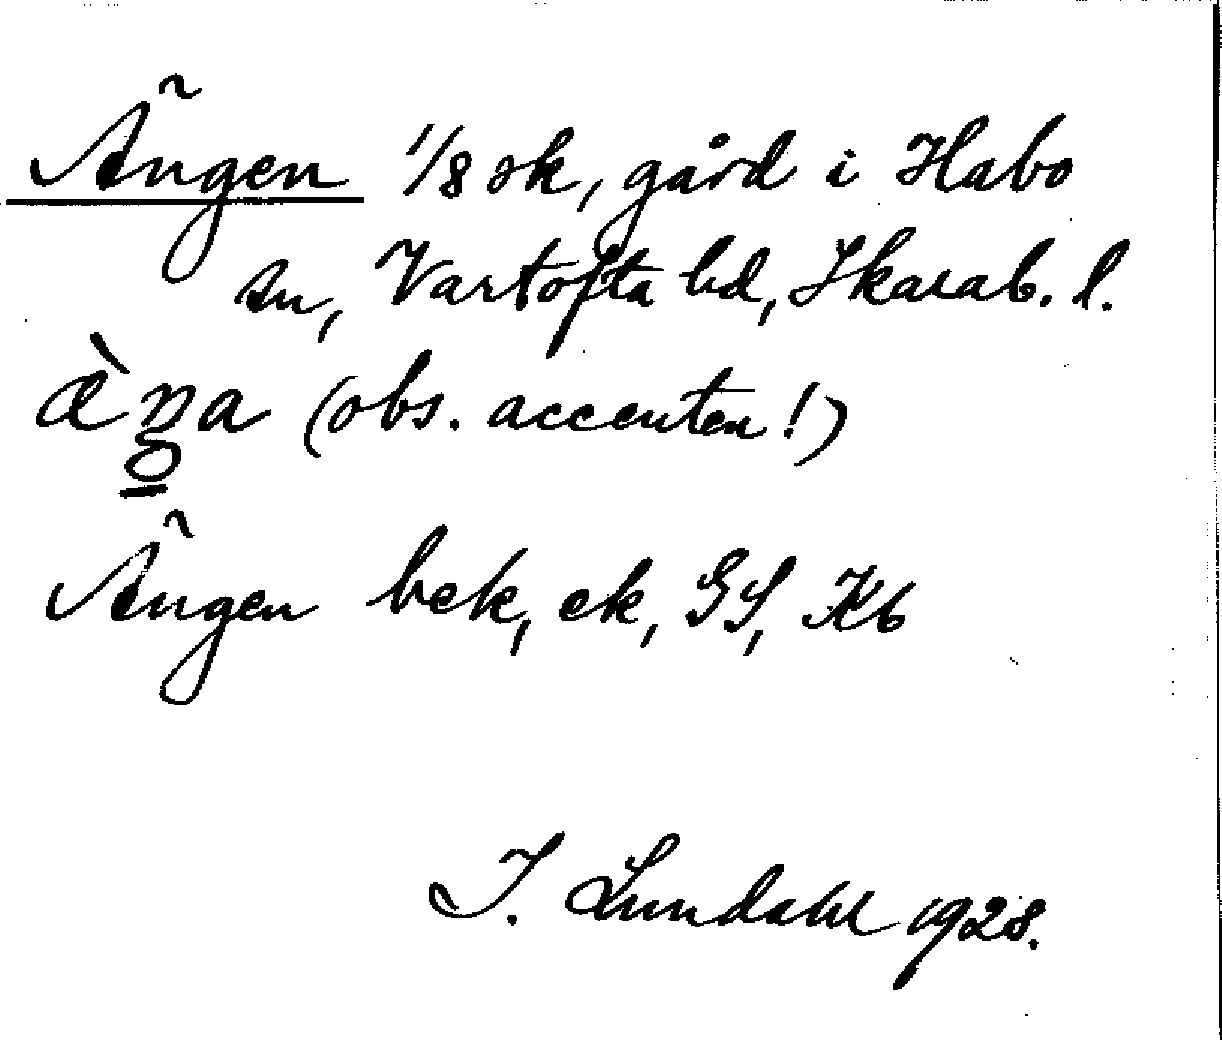 Ängen 1/8 sk, gård i Habo
sn, Vartofta hd, Skarab. l.
æ̀ŋa (obs. accenten!)
Ängen bek, ek, GS, Kb
I. Lundahl 1928.